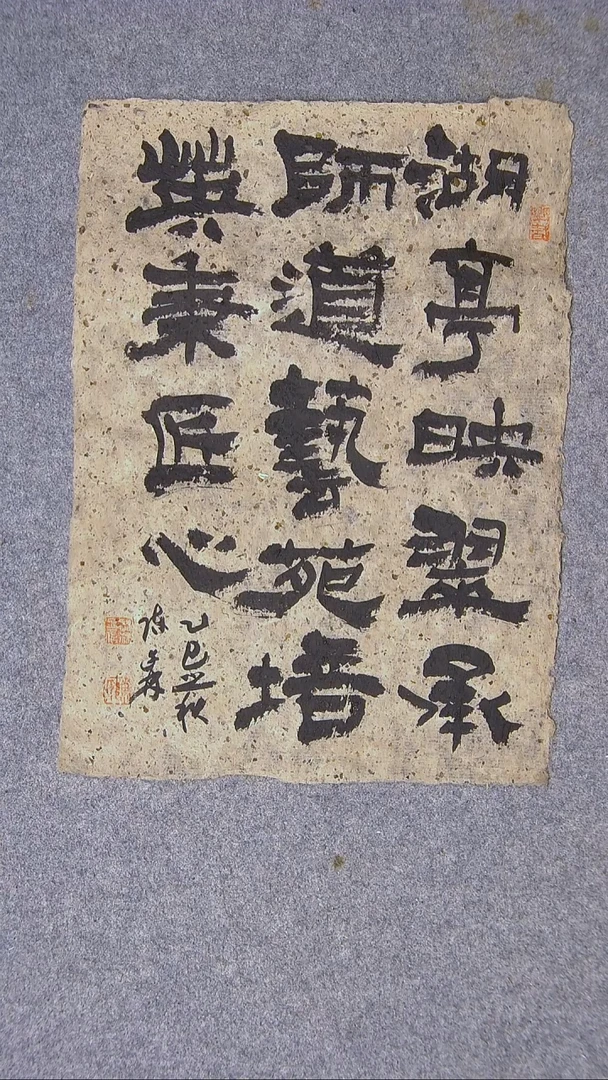 湖亭映翠承
師道藝苑培
英秉匠心
乙巳之秋